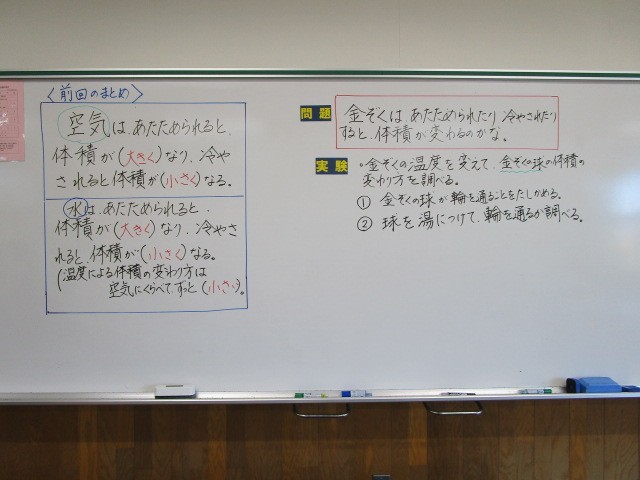 〈前回のまとめ〉
空気は、あたためられると、
体積が(大きく)なり、冷や
されると体積が(小さく)なる。
水は、あたためられると、
体積が(大きく)なり、冷やさ
れると、体積が(小さく)なる。
(温度による体積の変わり方は
空気にくらべて、ずっと(小さい)。
問題
金ぞくは、あたためられたり、冷やされたり
すると、体積が変わるのかな。
実験
・金ぞくの温度を変えて、金ぞくの球の体積の
変わり方を調べる。
① 金ぞくの球が輪を通ることをたしかめる。
② 球を湯につけて、輪を通るか調べる。